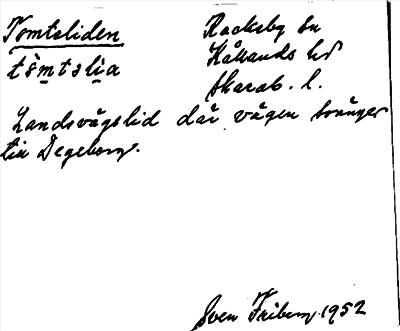 Tomteliden Rackeby sn
tòmtəlìa Kållands hd
Skarab. l.
Landsvägslid där vägen svänger
till Degeberg.
Sven Friberg 1952